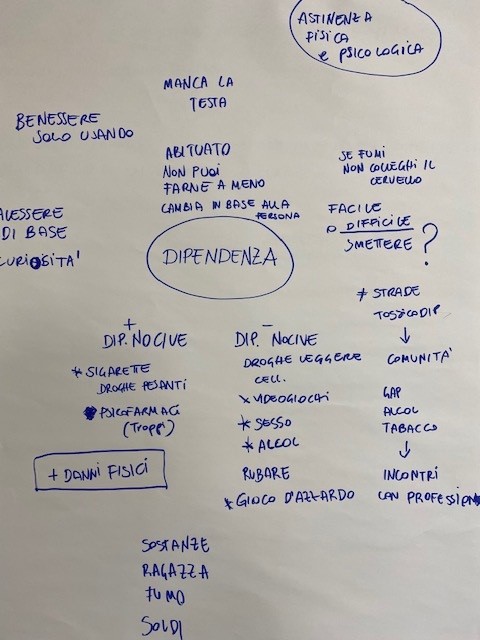 ASTINENZA
FISICA
e PSICOLOGICA
MANCA LA
TESTA
BENESSERE
SOLO USANDO
ABITUATO
NON PUOI
FARNE A MENO
CAMBIA IN BASE ALLA
PERSONA
SE FUMI
NON COLLEGHI IL
CERVELLO
ALESSERE
DI BASE
CURIOSITA'
FACILE
O DIFFICILE
SMETTERE ?
DIPENDENZA
+
DIP. NOCIVE
* SIGARETTE
DROGHE PESANTI
PSICOFARMACI
(TROPPI)
+ DANNI FISICI
-
DIP. NOCIVE
DROGHE LEGGERE
CELL.
* VIDEOGIOCHI
* SESSO
* ALCOL
RUBARE
* GIOCO D'AZZARDO
* STRADE
TOSSICODIP
↓
COMUNITA'
GAP
ALCOL
TABACCO
↓
INCONTRI
CON PROFESSION
SOSTANZE
RAGAZZA
FUMO
SOLDI